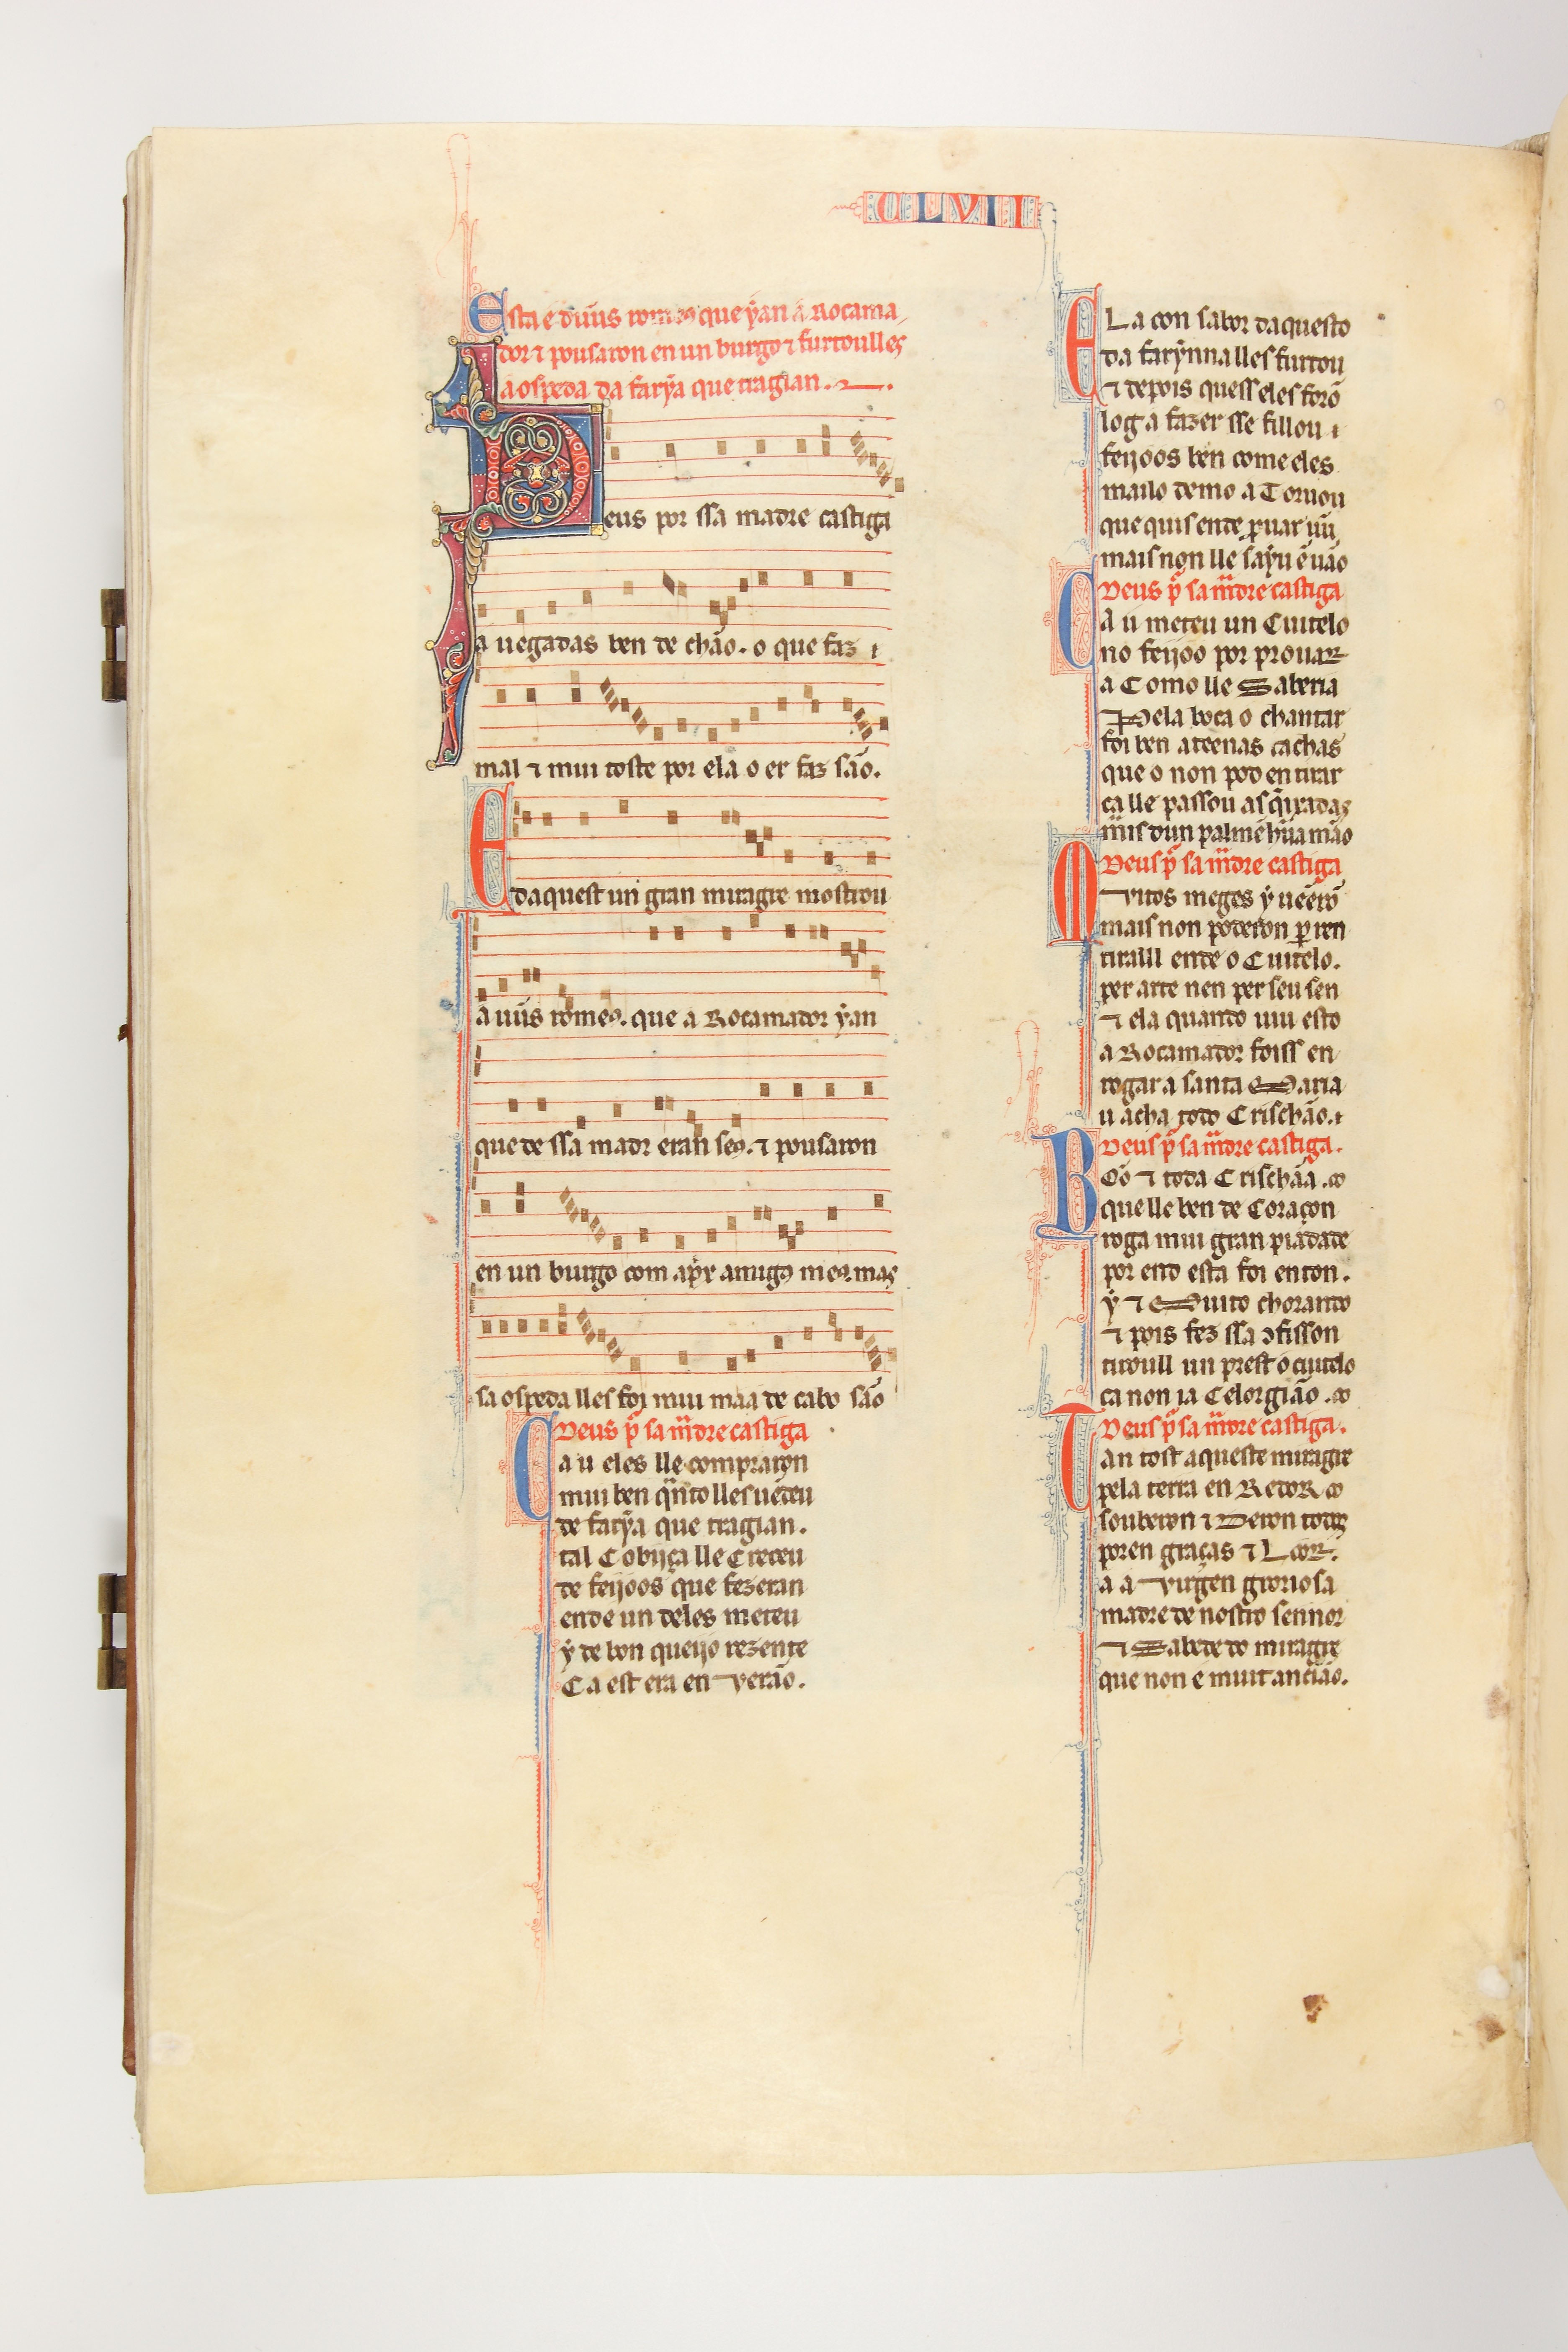 CLVII
Esta e dũus romeus que ỹan a Rocama
dor ⁊ pousaron en un burgo ⁊ furtoulles
a ospeda da farỹa que tragian.
Deus por ssa madre castiga
a uegadas ben de chão. o que faz
mal ⁊ mui toste por ela o er faz são.
E daquest un gran miragre mostrou
a uũs romeus. que a Rocamador ỹan
que de ssa madr eran seus. ⁊ pousaron
en un burgo com apr̃x amigos meos. mas
sa ospeda lles foi mui maa de cabo são
Deus p̃ sa m̃dre castiga
Ca u eles lle compraron
mui ben qñto lles uẽdeu
de farỹa que tragian.
tal Cobijça lle Creceu
de feijoos que fezeran
ende un deles meteu
ỹ de bon queijo rezente
Ca est era en verão.
ELa con sabor daquesto
da farỹnna lles furtou
⁊ depois quess eles forõ
log a fazer sse fillou
feijoos ben come eles
mailo demo a Tornou
que quis ende ꝓuar uũ
mais non lle saỹu ẽ uão
Deus p̃ sa m̃dre castiga
Ca u meteu un Cuitelo
no feijoo por prouar
a Como lle Saberia
Pela boca o chantar
foi ben atẽenas cachas
que o non poden tirar
ca lle passou as q̃ixadas
m̃is dun palmẽ hũa mão
Deus p̃ sa m̃dre castiga
Muitos meges ỹ uẽerõ
mais non poderon ꝑ ren
tiralll ende o Cuitelo.
per arte nen per seu sen
⁊ ela quando uiu esto
a Rocamador foiss en
rogar a santa Maria
u acha todo Crischão.
Deus p̃ sa m̃dre castiga.
BOõ ⁊ toda Crischãa.
que lle ben de Coraçon
roga mui gran piadade
por end esta foi enton.
ỹ ⁊ Muito chorando
⁊ pois fez ssa ↄfisson
tiroull un prest o cuitelo
ca non ia Celorgião.
Deus p̃ sa m̃dre castiga.
Tan tost aqueste miragre
pela terra en Redor
souberon ⁊ Deron todos
poren graças ⁊ Loor.
a a virgen groriosa
madre de nostro sennor
⁊ Sabede do miragre
que non e muit ancião.